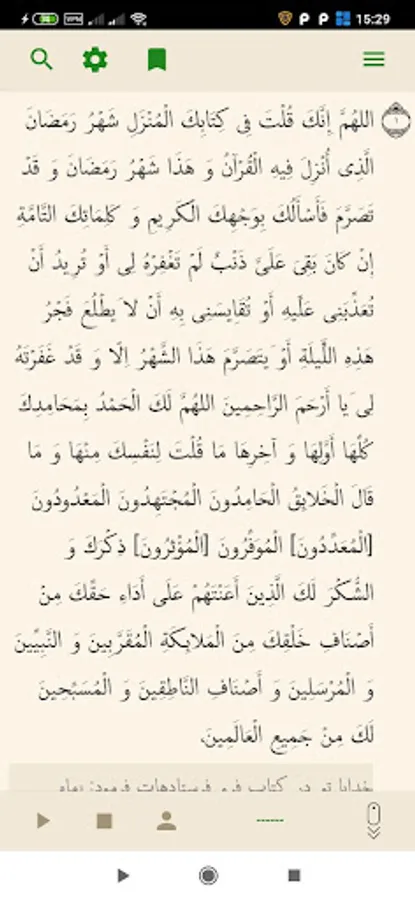 15:29
اللهُمَّ إِنَّكَ قُلْتَ فِى كِتَابِكَ الْمُنْزَلِ شَهْرُ رَمَضَانَ
الَّذِى أُنْزِلَ فِيهِ الْقُرْآنُ وَ هَذَا شَهْرُ رَمَضَانَ وَ قَدْ
تَصَرَّمَ فَأَسْأَلُكَ بِوَجْهِكَ الْكَرِيمِ وَ كَلِمَاتِكَ التَّامَّةِ
إِنْ كَانَ بَقِىَ عَلَىَّ ذَنْبٌ لَمْ تَغْفِرْهُ لِى أَوْ تُرِيدُ أَنْ
تُعَذِّبَنِى عَلَيْهِ أَوْ تُقَايِسَنِى بِهِ أَنْ لا يَطْلُعَ فَجْرُ
هَذِهِ اللَّيْلَةِ أَوْ يَتَصَرَّمَ هَذَا الشَّهْرُ إِلّا وَ قَدْ غَفَرْتَهُ
لِى يَا أَرْحَمَ الرَّاحِمِينَ اللهُمَّ لَكَ الْحَمْدُ بِمَحَامِدِكَ
كُلِّهَا أَوَّلِهَا وَ آخِرِهَا مَا قُلْتَ لِنَفْسِكَ مِنْهَا وَ مَا
قَالَ الْخَلائِقُ الْحَامِدُونَ الْمُجْتَهِدُونَ الْمَعْدُودُونَ
[الْمُعَدِّدُونَ] الْمُوَقِّرُونَ [الْمُؤْثِرُونَ] ذِكْرَكَ وَ
الشُّكْرَ لَكَ الَّذِينَ أَعَنْتَهُمْ عَلَى أَدَاءِ حَقِّكَ مِنْ
أَصْنَافِ خَلْقِكَ مِنَ الْمَلائِكَةِ الْمُقَرَّبِينَ وَ النَّبِيِّينَ
وَ الْمُرْسَلِينَ وَ أَصْنَافِ النَّاطِقِينَ وَ الْمُسَبِّحِينَ
لَكَ مِنْ جَمِيعِ الْعَالَمِينَ.
خدایا تو در کتاب فرو فرستاده‌ات فرمود: بماه